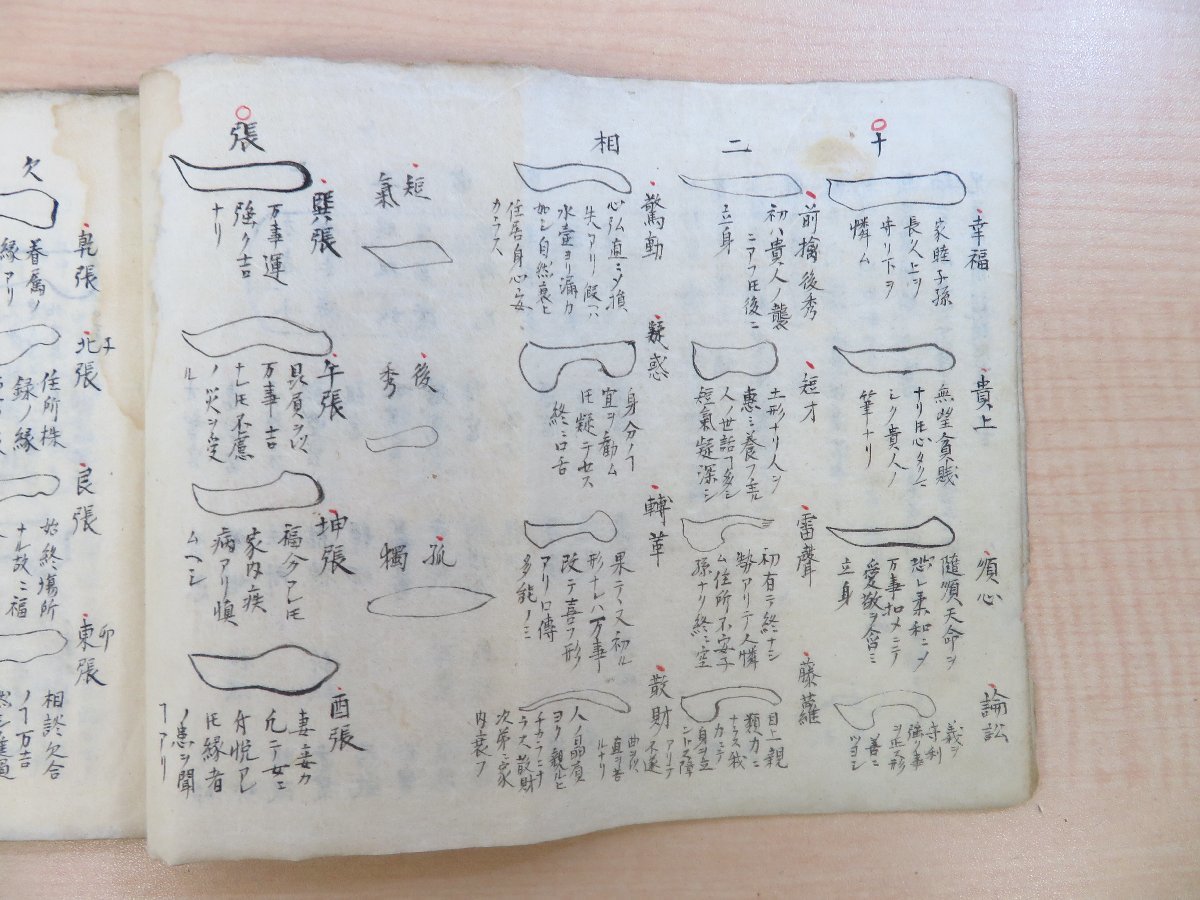 十
二
相
幸福
家睦子孫
長久上ヲ
守リ下ヲ
憐ム
貴上
無望貧賤
ナリ𪜈心タクマ
シク貴人ノ
筆ナリ
順心
随順天命ヲ
恐レ柔和ニメ
万事扣メニテ
愛敬ヲ含ミ
立身
論訟
義ヲ
守利
強ク事
ヲ正ス形
善ニ
ツヨシ
前擒後秀
初ハ貴人ノ襲
ニアフ𪜈後ニ
立身
短才
土形ナリ人ヲ
恵ミ養フ㕝
人ノ世話ヿ多シ
短氣疑深シ
雷聲
初有テ終ナシ
勢アリテ人憐
ム住所不安子
孫ナリ終ニ空
藤蘿
目上親
類カニ
ナラス我
カニテ
身ヲ立
驚動
心弘直ニメ損
失アリ假ハ
水壺ヨリ漏カ
如シ自然衰ヒ
住居身心安
カラス
疑惑
身分ノヿ
宜ヲ勧ム
𪜈疑テセス
終ニ口舌
轉革
果テ又初ル
形ナレハ万事
改テ喜フ形
アリ口傳
多能ノミ
散財
不遂
アリテ
曲ヲ以
直ヲ善
ルナリ
人ノ品負
ヨク親ルヒ
チカラニナ
ラス散財
次第ニ家
内衰フ
短
氣
後
秀
孤
獨
張
巽ノ張
万事運
強ク吉
ナリ
午張
昆負ヲ以
万事吉
ナレ𪜈不慮
ノ災ヲ受
ル
坤張
福分アレ𪜈
家内疾
病アリ慎
ムヘシ
酉張
妻妾カ
凡テ女ニ
付悦アレ
𪜈縁者
ノ患ヲ聞
ヿアリ
欠
乾張
眷属ノ
縁アリ
子
北張
住所株
録ノ縁
艮張
始終場所
ナル故ニ福
卯
東張
相談欠合
ノヿ万吉